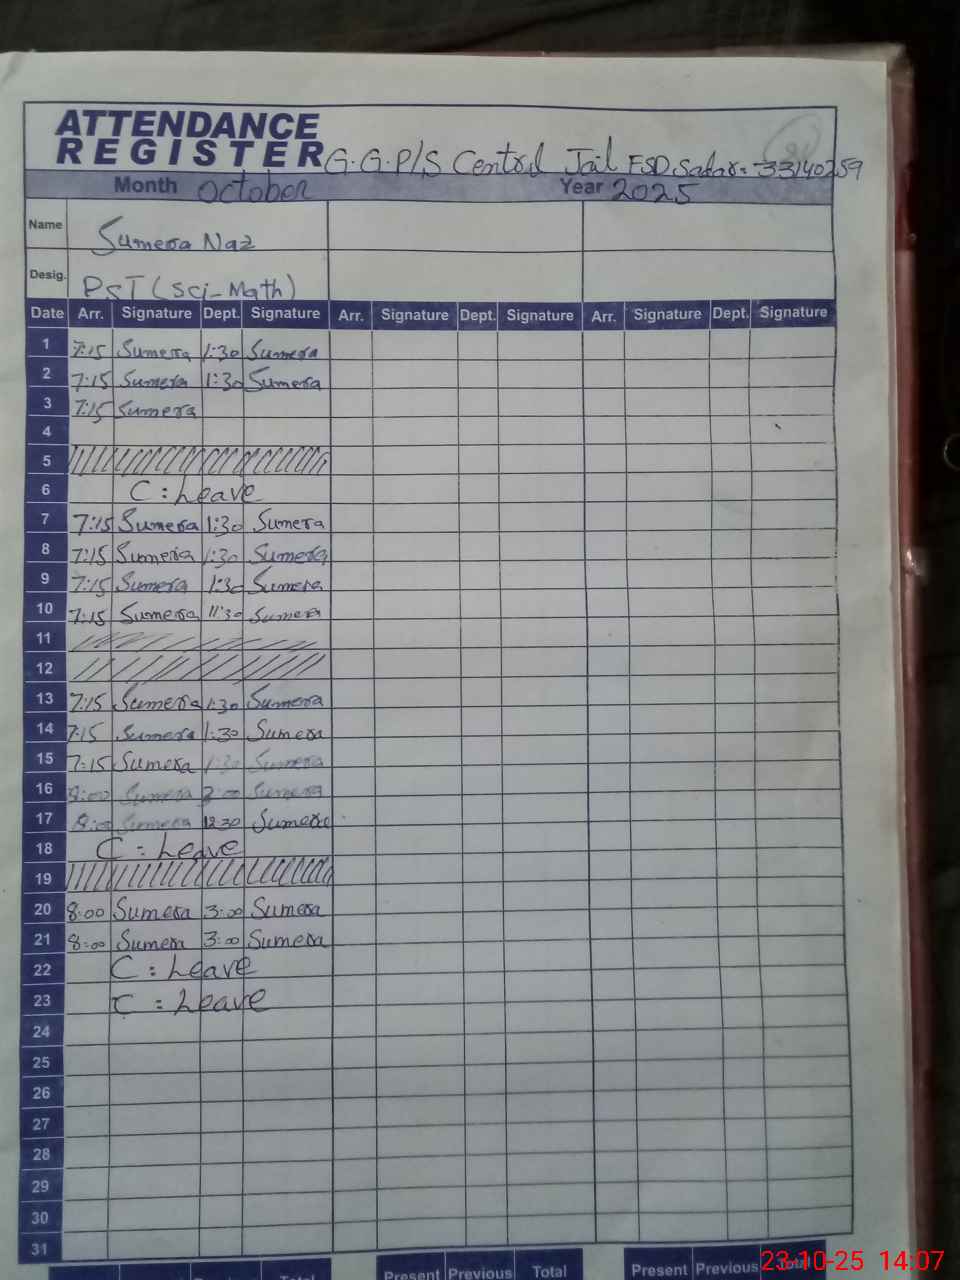 ATTENDANCE
REGISTER G.G.P/S Central Jail FSD Sadar. 33140259
Month October Year 2025
Name Sumera Naz
Desig. PST (Sci-Math)
Date Arr. Signature Dept. Signature Arr. Signature Dept. Signature Arr. Signature Dept. Signature
1 7:15 Sumera 1:30 Sumera
2 7:15 Sumera 1:30 Sumera
3 7:15 Sumera
4
5
6 C: Leave
7 7:15 Sumera 1:30 Sumera
8 7:15 Sumera 1:30 Sumera
9 7:15 Sumera 1:30 Sumera
10 7:15 Sumera 11:30 Sumera
11
12
13 7:15 Sumera 1:30 Sumera
14 7:15 Sumera 1:30 Sumera
15 7:15 Sumera 1:30 Sumera
16 8:00 Sumera 3:00 Sumera
17 8:00 Sumera 12:30 Sumera
18 C: Leave
19
20 8:00 Sumera 3:00 Sumera
21 8:00 Sumera 3:00 Sumera
22 C: Leave
23 C: Leave
24
25
26
27
28
29
30
31
Present Previous Total Present Previous Total
23-10-25 14:07